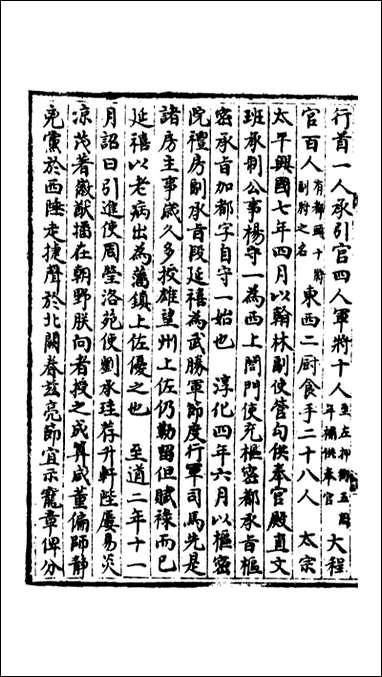 行首一人承引官四人軍將十人至左押衙五周年補供奉官大程
官百人有都國十將副將之名東西二厨食手二十八人 太宗
太平興國七年四月以翰林副使管句供奉官殿直文
班承制公事楊守一為西上閤門使充樞密都承旨樞
密承旨加都字自守一始也 淳化四年六月以樞密
院禮房副承旨段延禧為武勝軍節度行軍司馬先是
諸房主事歲久多授雄望州上佐仍勒留但賦祿而已
延禧以老病出為藩鎮上佐優之也 至道二年十一
月詔曰引進使周瑩洛苑使劉承珪荐升軒陛屢易炎
凉茂著徽猷播在朝野朕向者授之成算咸董偏師靜
兇黨於西陲走捷聲於北闕眷茲亮節宜示寵章俾分